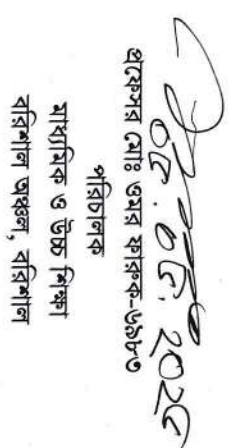 প্রফেসর মোঃ ওমর ফারুক-৬৯৮৩
পরিচালক
মাধ্যমিক ও উচ্চ শিক্ষা
বরিশাল অঞ্চল, বরিশাল